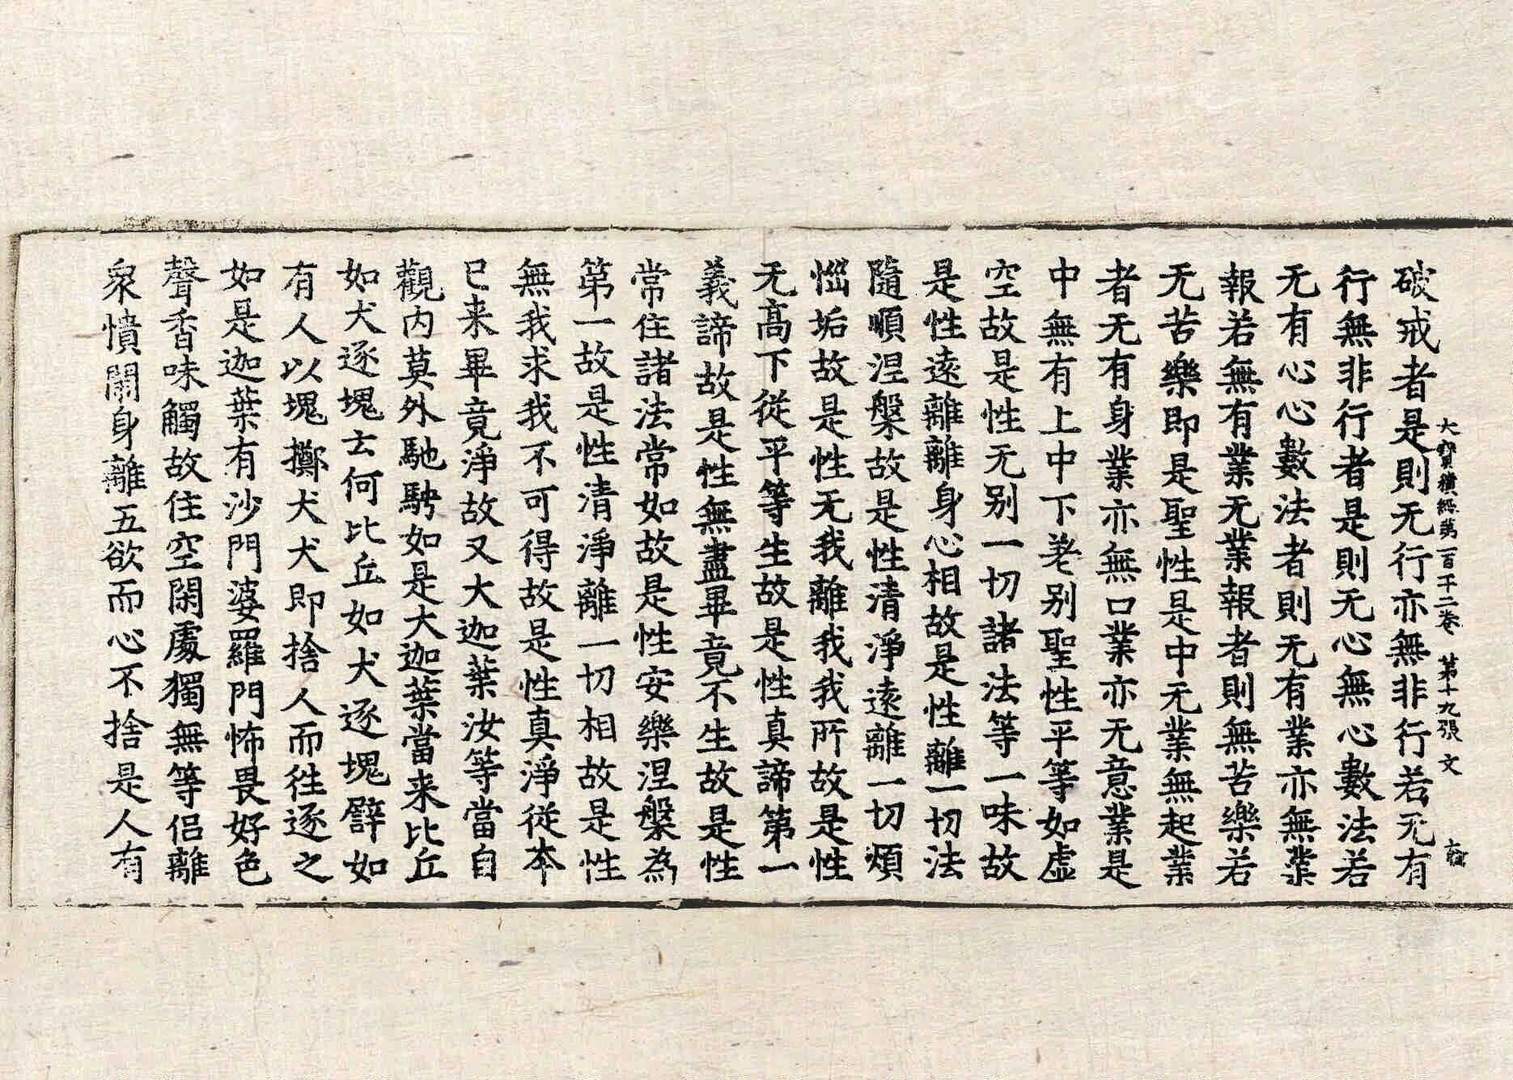 破戒者是則无行亦無非行若无有
大寶積經第一百十二卷　第十九張　文
行無非行者是則无心無心數法若
无有心心數法者則无有業亦無業
報若無有業无業報者則無苦樂若
无苦樂即是聖性是中无業無起業
者无有身業亦無口業亦无意業是
中無有上中下差别聖性平等如虛
空故是性无别一切諸法等一味故
是性遠離離身心相故是性離一切法
隨順涅槃故是性清淨遠離一切煩
惱垢故是性无我離我我所故是性
无高下從平等生故是性真諦第一
義諦故是性無盡畢竟不生故是性
常住諸法常如故是性安樂涅槃為
第一故是性清淨離一切相故是性
無我求我不可得故是性真淨從本
已来畢竟淨故又大迦葉汝等當自
觀内莫外馳騁如是大迦葉當来比丘
如犬逐塊云何比丘如犬逐塊譬如
有人以塊擲犬犬即捨人而徃逐之
如是迦葉有沙門婆羅門怖畏好色
聲香味觸故住空閑處獨無等侣離
衆憒閙身離五欲而心不捨是人有